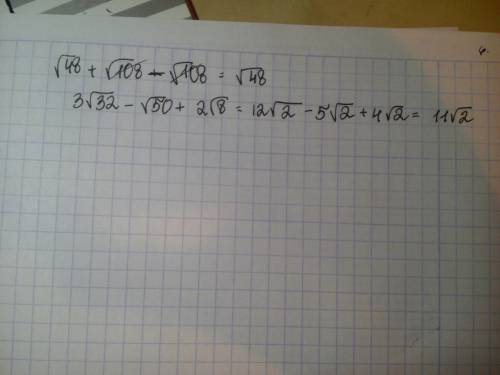 √48 + √108 - √108 = √48
3√32 - √50 + 2√8 = 12√2 - 5√2 + 4√2 = 11√2